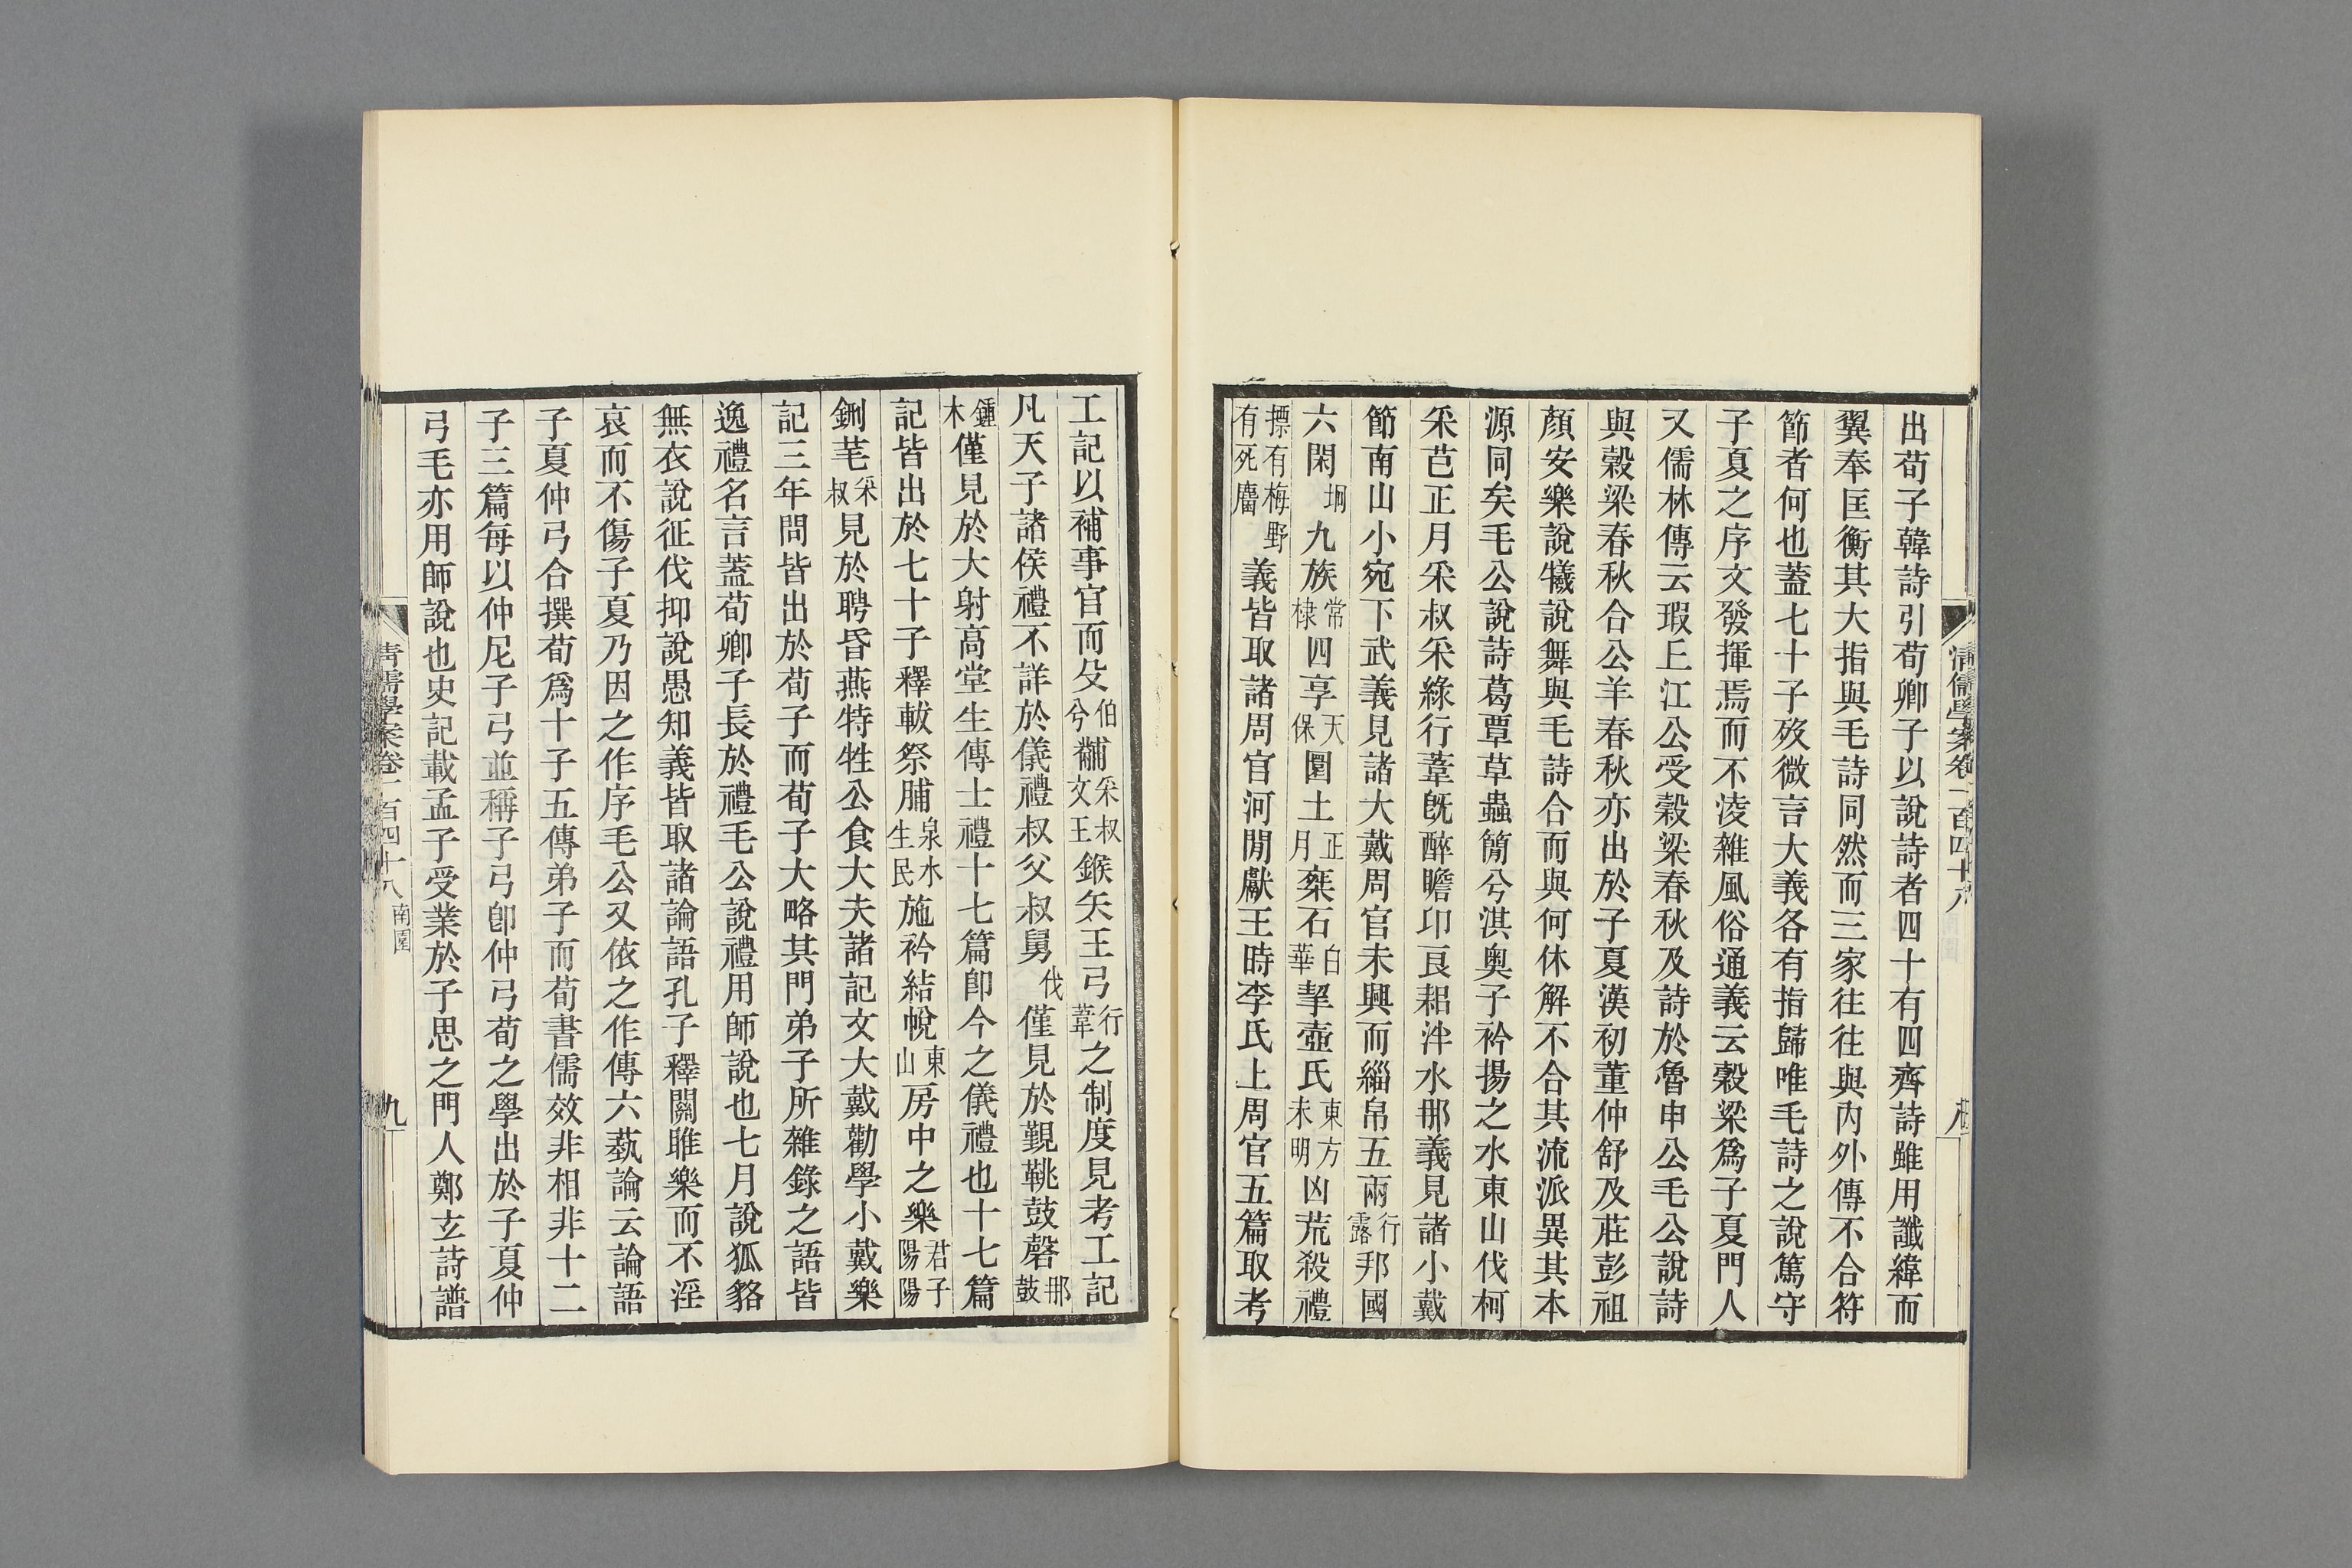 出荀子韓詩引荀卿子以說詩者四十有四齊詩雖用讖緯而
翼奉匡衡其大指與毛詩同然而三家往往與內外傳不合符
節者何也蓋七十子歿微言大義各有指歸唯毛詩之說篤守
子夏之序文發揮焉而不淩雜風俗通義云穀梁爲子夏門人
又儒林傳云瑕丘江公受穀梁春秋及詩於魯申公毛公說詩
與穀梁春秋合公羊春秋亦出於子夏漢初董仲舒及莊彭祖
顏安樂說犧說舞與毛詩合而與何休解不合其流派異其本
源同矣毛公說詩葛覃草蟲簡兮淇奧子衿揚之水東山伐柯
采芑正月采叔采綠行葦旣醉瞻卬良耜泮水那義見諸小戴
節南山小宛下武義見諸大戴周官未興而緇帛五兩行露邦國
六閑坰九族常棣四享天保圜土正月桀石白華挈壺氏東方未明凶荒殺禮
摽有梅野有死麕義皆取諸周官河閒獻王時李氏上周官五篇取考
清儒學案卷一百四十八
八
工記以補事官而殳伯兮黼采叔文王鍭矢王弓行葦之制度見考工記
凡天子諸侯禮不詳於儀禮叔父叔舅伐木僅見於覲鞉鼓磬那鼓
鍾僅見於大射高堂生傳士禮十七篇卽今之儀禮也十七篇
記皆出於七十子釋軷祭脯泉水生民施衿結帨東山房中之樂君子陽陽
鉶芼采叔見於聘昏燕特牲公食大夫諸記文大戴勸學小戴樂
記三年問皆出於荀子而荀子大略其門弟子所雜錄之語皆
逸禮名言蓋荀卿子長於禮毛公說禮用師說也七月說狐貉
無衣說征伐抑說愚知義皆取諸論語孔子釋關雎樂而不淫
哀而不傷子夏乃因之作序毛公又依之作傳六蓺論云論語
子夏仲弓合撰荀爲十子五傳弟子而荀書儒效非相非十二
子三篇每以仲尼子弓並稱子弓卽仲弓荀之學出於子夏仲
弓毛亦用師說也史記載孟子受業於子思之門人鄭玄詩譜
清儒學案卷一百四十八 南園
九